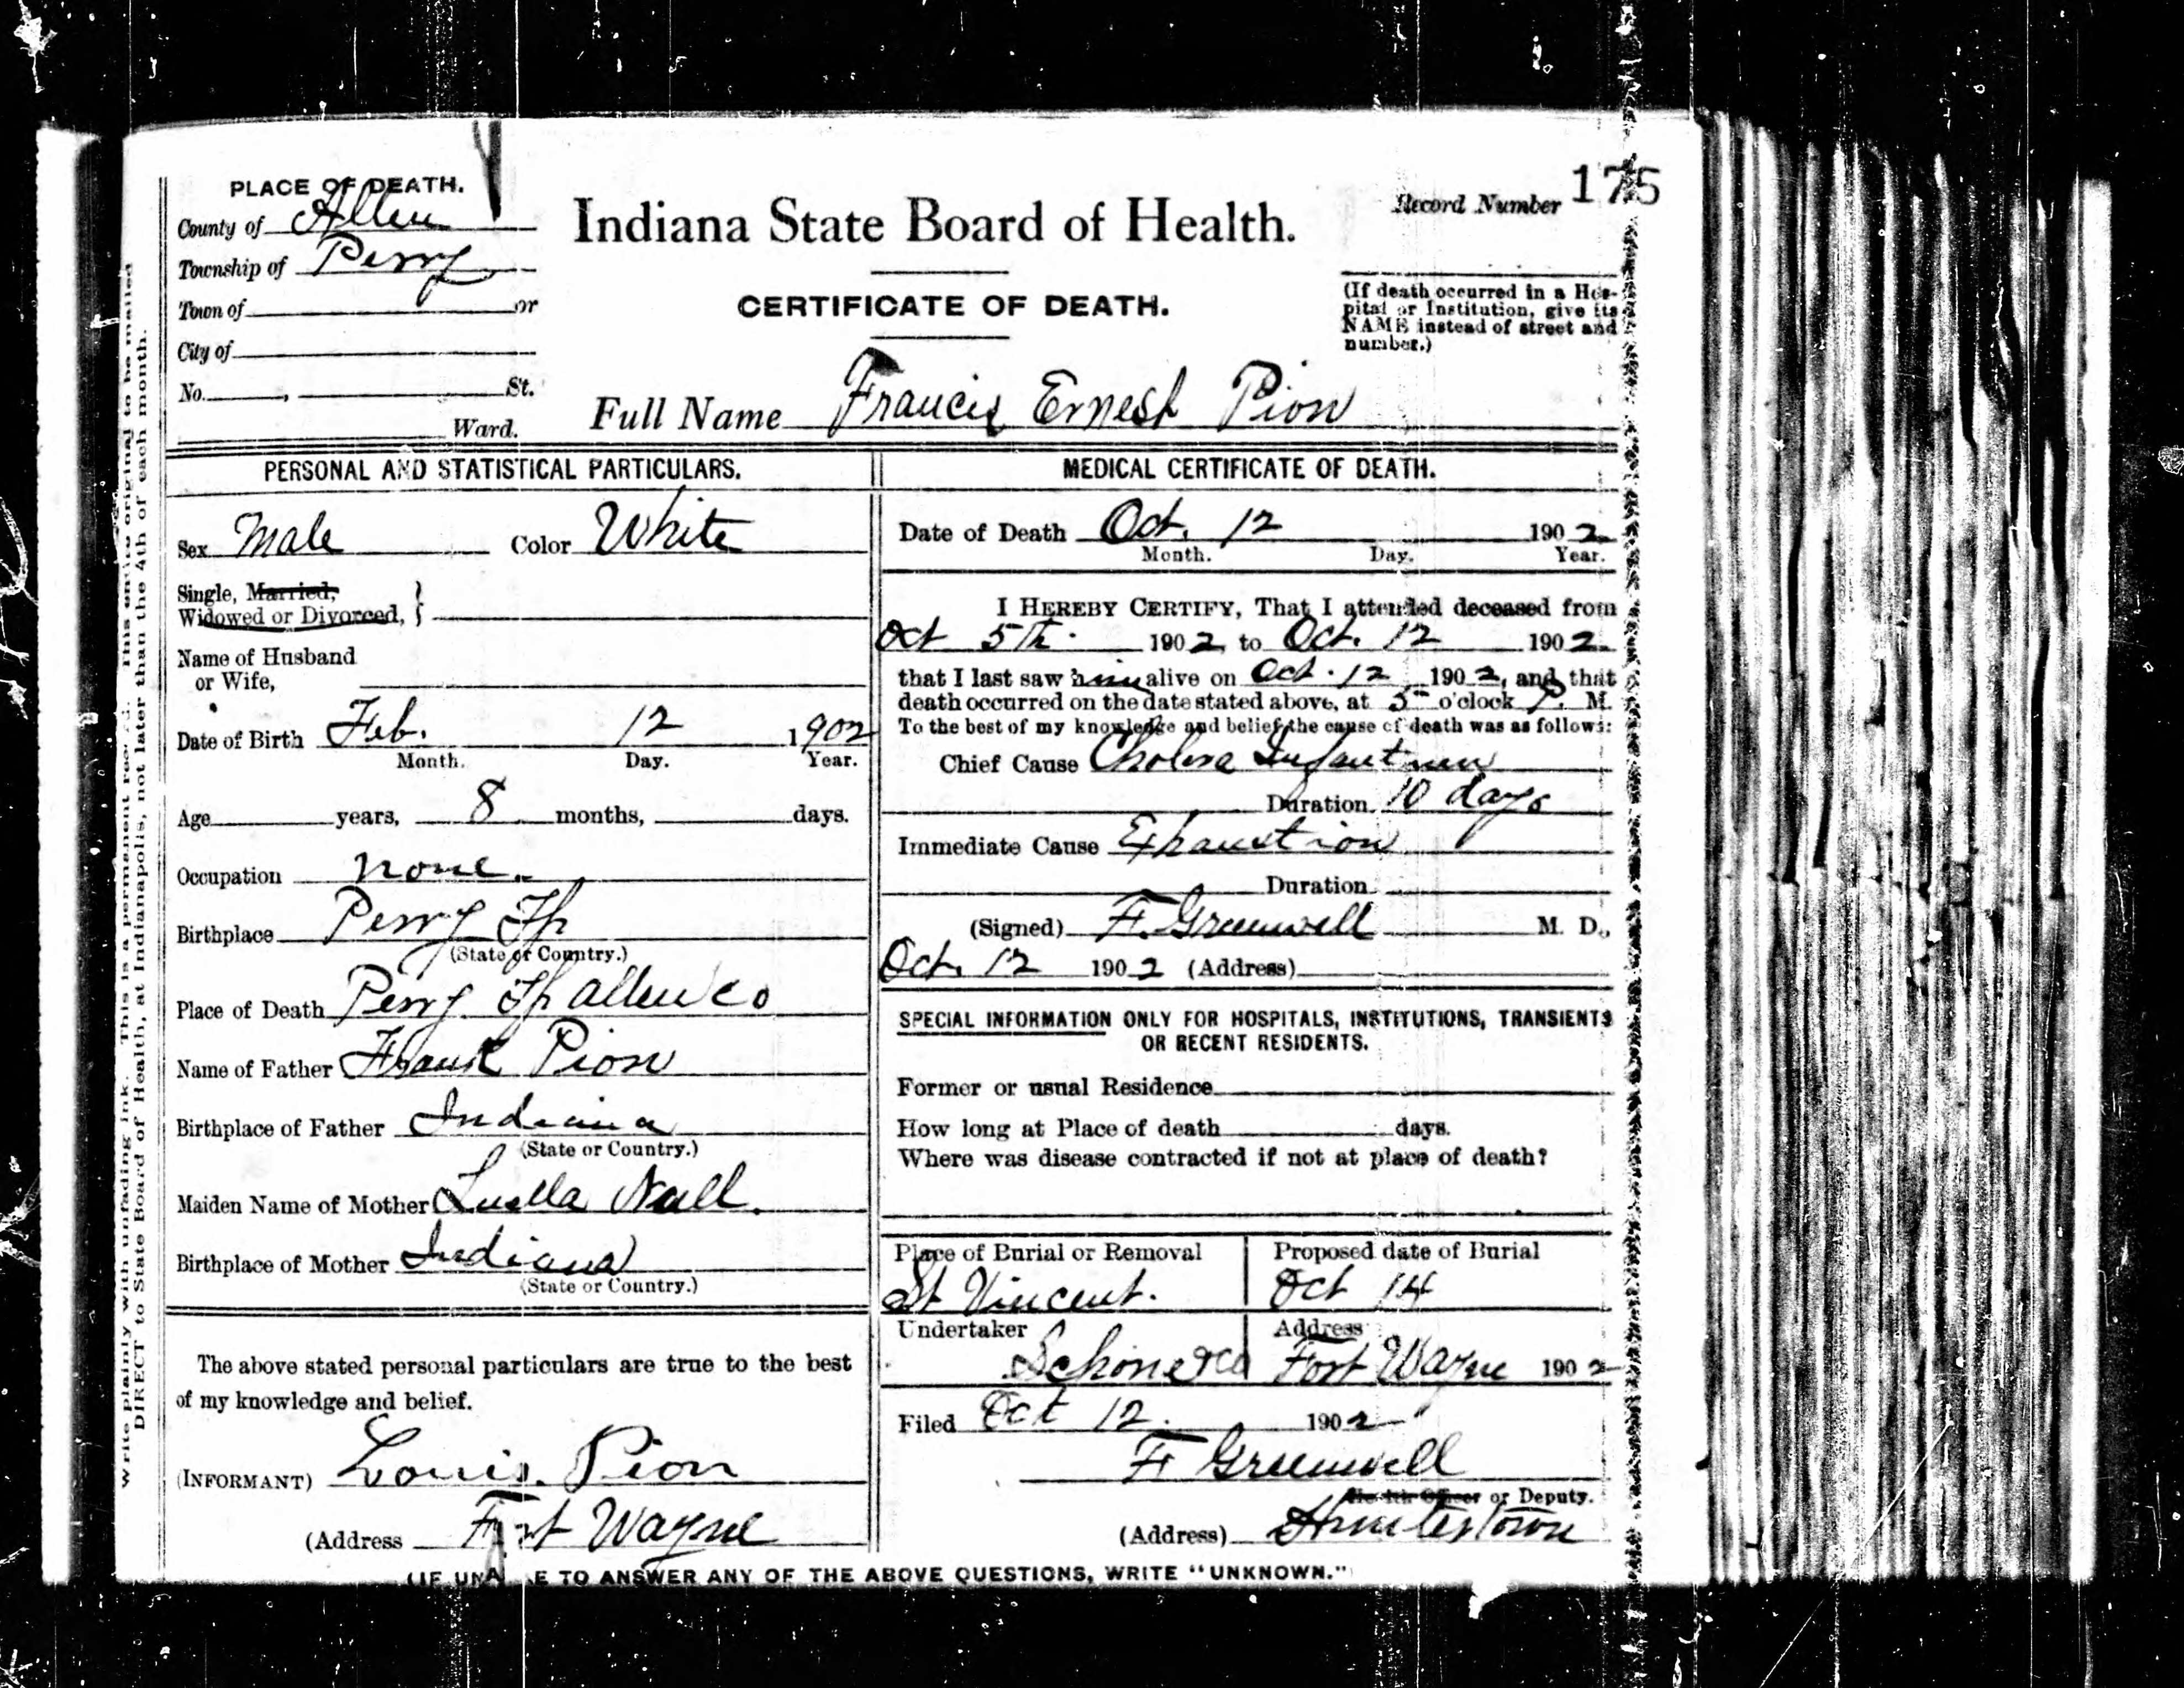 PLACE OF DEATH.
County of Allen
Township of Perry
Town of or
City of
No. , St.
Ward.
Indiana State Board of Health.
CERTIFICATE OF DEATH.
Record Number 175
(If death occurred in a Hos-
pital or Institution, give its
NAME instead of street and
number.)
Full Name Francis Ernest Pion
Write plainly with unfading ink. This is a permanent record. This entire original to be mailed
DIRECT to State Board of Health, at Indianapolis, not later than the 4th of each month.
PERSONAL AND STATISTICAL PARTICULARS.
Sex Male Color White
Single, Married,
Widowed or Divorced, }
Name of Husband
or Wife,
Date of Birth Feb. 12 1902
Month. Day. Year.
Age years, 8 months, days.
Occupation none.
Birthplace Perry Tp
(State or Country.)
Place of Death Perry Tp Allen Co
Name of Father Frank Pion
Birthplace of Father Indiana
(State or Country.)
Maiden Name of Mother Luella Nall.
Birthplace of Mother Indiana
(State or Country.)
The above stated personal particulars are true to the best
of my knowledge and belief.
(INFORMANT) Louis. Pion
(Address Fort Wayne
MEDICAL CERTIFICATE OF DEATH.
Date of Death Oct. 12 1902
Month. Day. Year.
I HEREBY CERTIFY, That I attended deceased from
Oct 5th. 1902, to Oct. 12 1902
that I last saw him alive on Oct. 12 1902, and that
death occurred on the date stated above, at 5 o'clock P. M.
To the best of my knowledge and belief the cause of death was as follows:
Chief Cause Cholera Infantum
Duration 10 days
Immediate Cause Exhaustion
Duration
(Signed) F. Greenwell M. D.,
Oct. 12 1902 (Address)
SPECIAL INFORMATION ONLY FOR HOSPITALS, INSTITUTIONS, TRANSIENTS
OR RECENT RESIDENTS.
Former or usual Residence
How long at Place of death days.
Where was disease contracted if not at place of death?
Place of Burial or Removal
St Vincent.
Proposed date of Burial
Oct 14
Undertaker
Address
Fort Wayne 1902
Filed Oct 12. 1902
F Greenwell
Health Officer or Deputy.
(Address) Huntertown
(IF UNABLE TO ANSWER ANY OF THE ABOVE QUESTIONS, WRITE "UNKNOWN.")